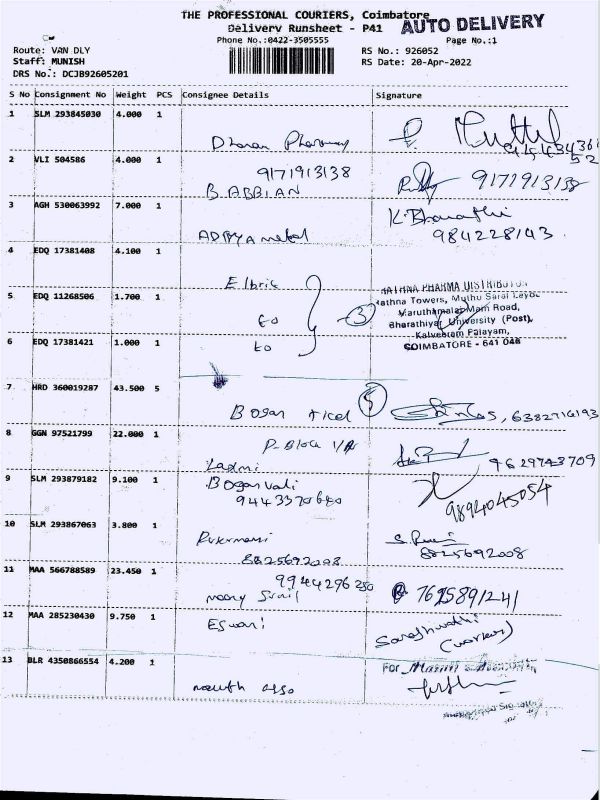 THE PROFESSIONAL COURIERS, Coimbatore
Delivery Runsheet - P41
AUTO DELIVERY
Phone No.:0422-3505555
Page No.:1
Route: VAN DLY
RS No.: 926052
Staff: MUNISH
RS Date: 20-Apr-2022
DRS No.: DCJB92605201
S No Consignment No Weight PCS Consignee Details Signature
1 SLM 293845030 4.000 1
2 VLI 504586 4.000 1
9171913138
9171913138
B.ABBIAN
3 AGH 530063992 7.000 1
K.Bharathi
984228143
4 EDQ 17381408 4.100 1
Elbric
RATHNA PHARMA DISTRIBUTOR
Rathna Towers, Muthu Sarai Layout
5 EDQ 11268506 1.700 1
3
Maruthamalai Main Road,
Bharathiyar University (Post),
Kalveeram Palayam,
6 EDQ 17381421 1.000 1
COIMBATORE - 641 046
7 HRD 360019287 43.500 5
5
6382716193
8 GGN 97521799 22.000 1
P-Block
9629743709
9 SLM 293879182 9.100 1
9443370680
9894045054
10 SLM 293867063 3.800 1
Rukumani
8825692008
8825692008
11 MAA 566788589 23.450 1
9944296250
7625891241
12 MAA 285230430 9.750 1
Eswari
Sarashwathi
(worker)
13 BLR 4350866554 4.200 1
For